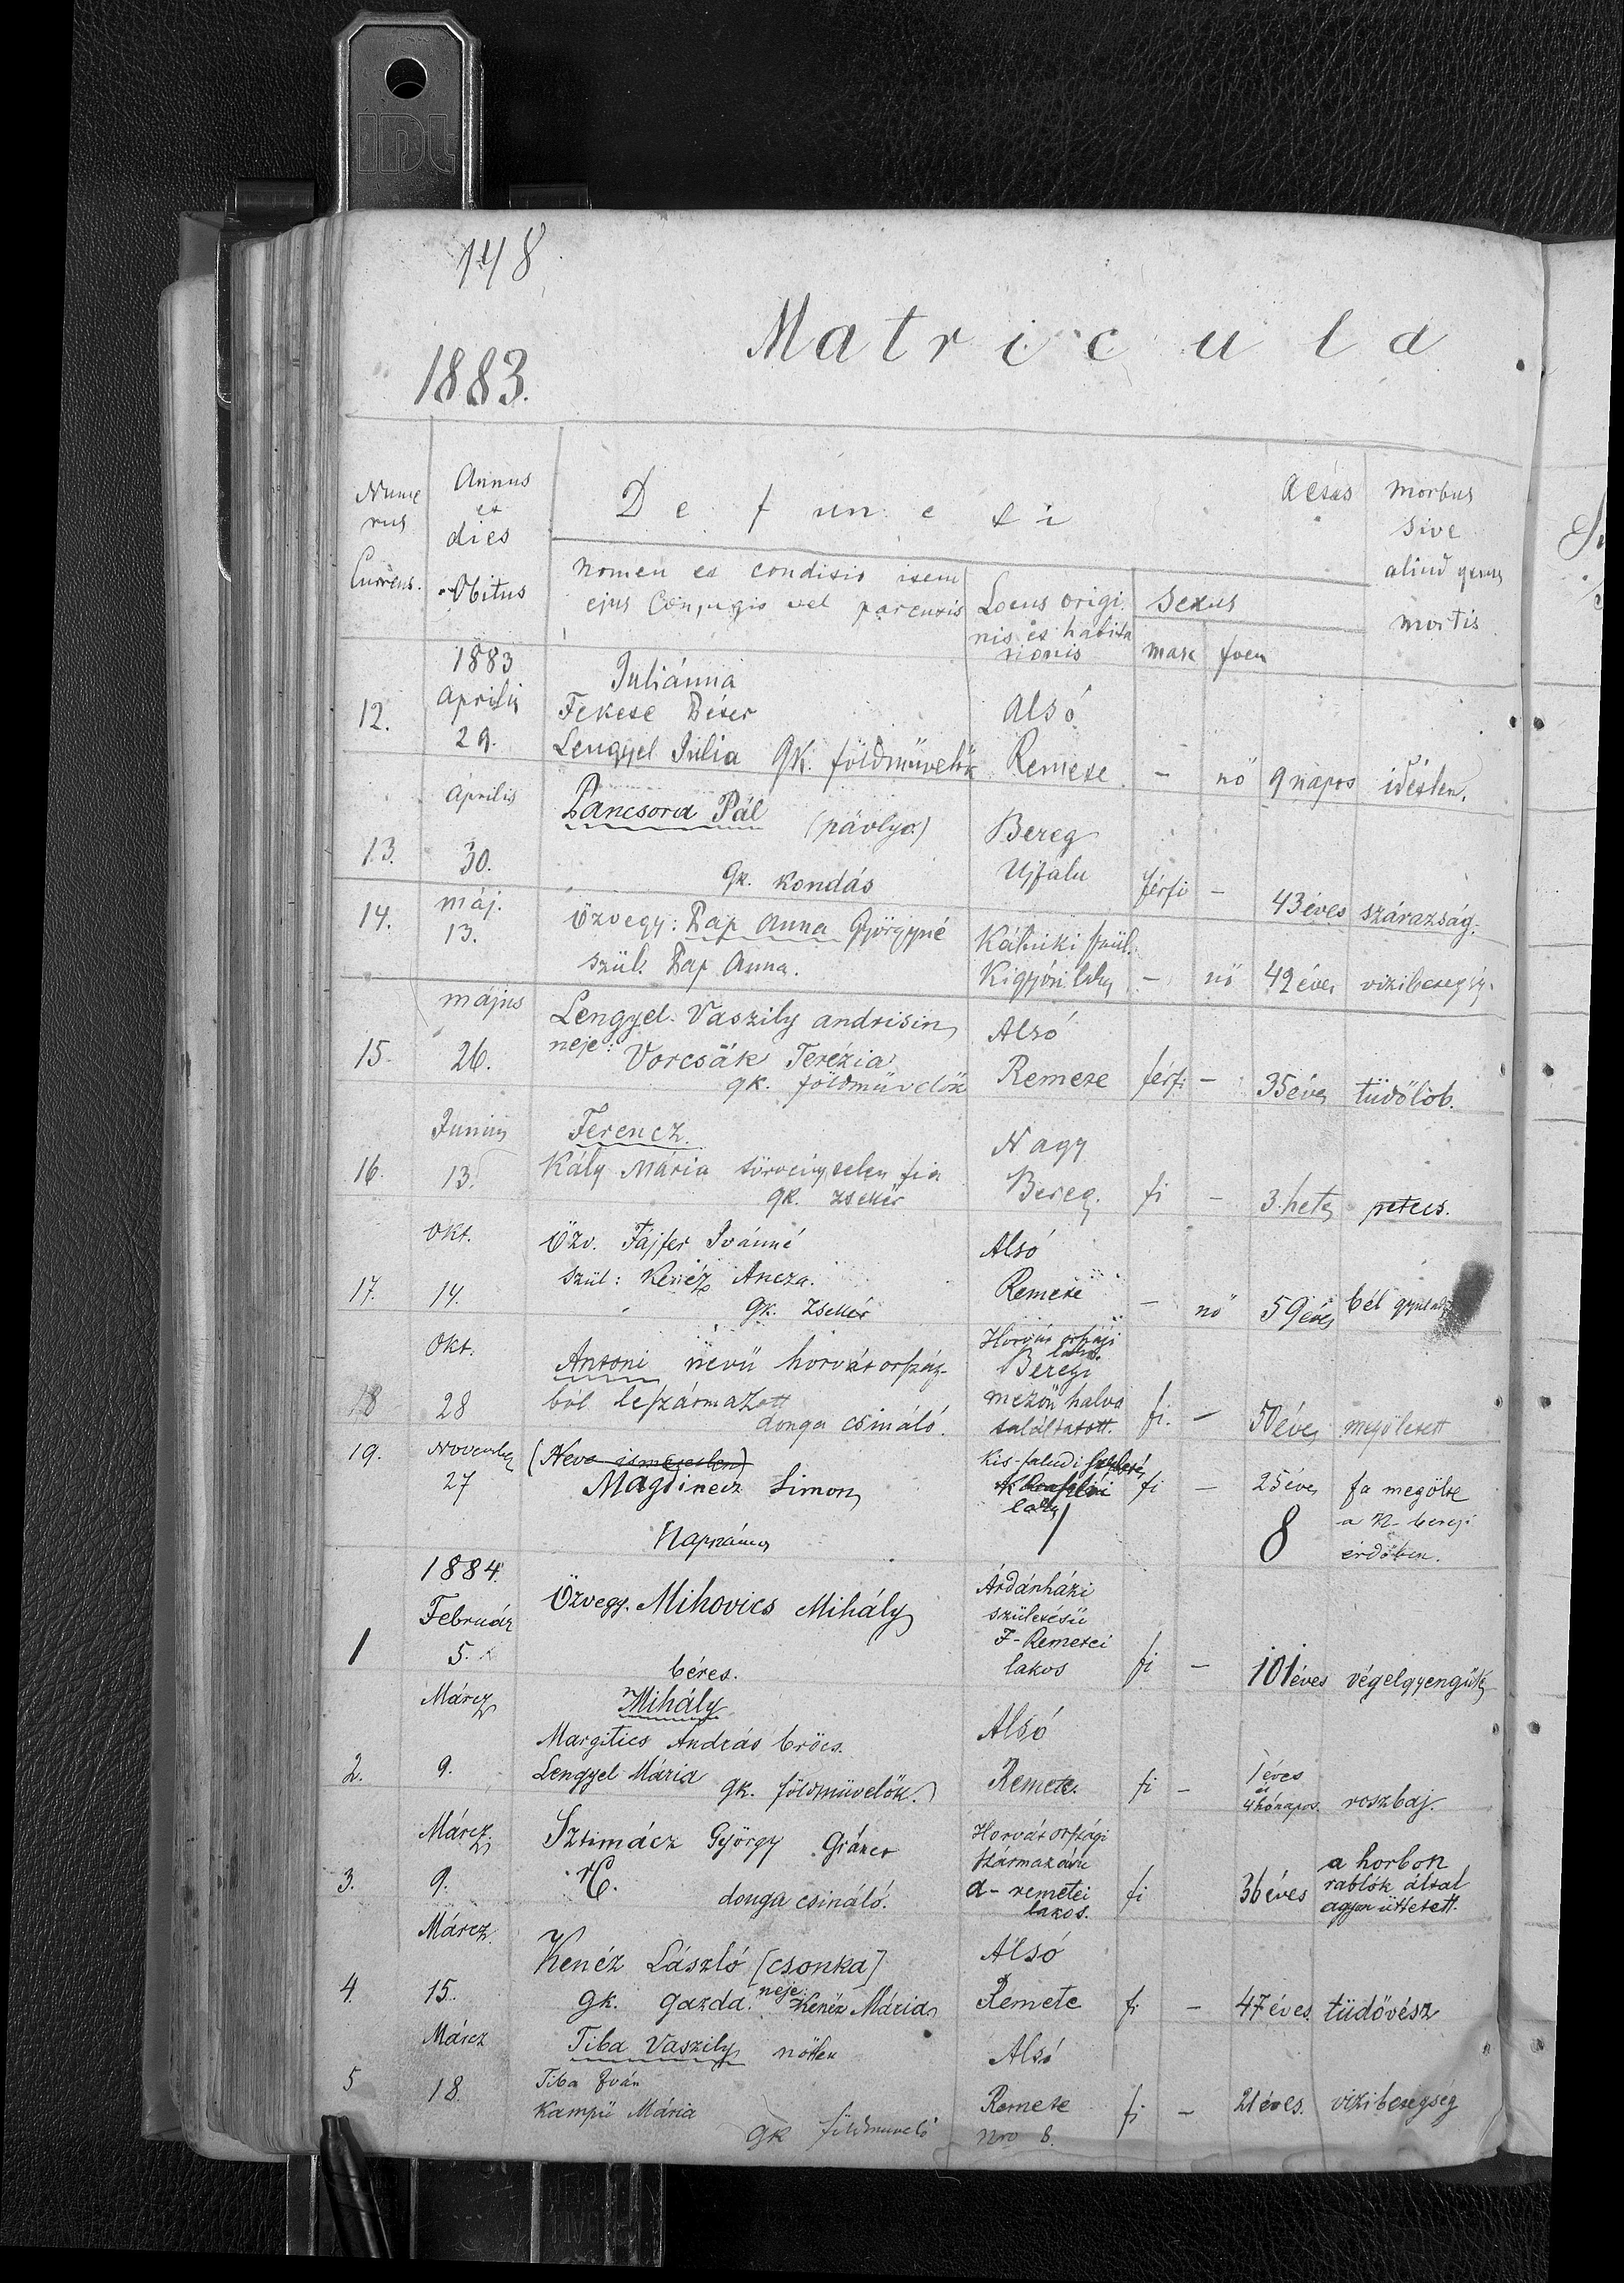 IDL
148
Matricula
1883.
Nume
rus
Currens.
Annus
et
dies
Obitus
Defuncti
Nomen et conditio item
ejus Conjugis vel parentis
Locus origi
nis et habita
tionis
Sexus
masc foem
Aetas
Morbus
sive
aliud genus
mortis
1883
Április
12. 29.
Juliánna
Fekete Péter
Lengyel Julia gk. földmüvelők
Alsó
Remete - nő 9 napos idétlen.
Április
13. 30.
Pancsora Pál (pávlyo)
gk. kondás
Bereg
Ujfalu férfi - 43 éves szárazság.
14. máj.
13.
Özvegy: Pap Anna Györgyné
szül. Pap Anna.
Kálniki szül.
Kigyósi lakos - nő 42 éves vizibetegség.
május
15. 26.
Lengyel Vaszily andrisin
neje: Vorcsák Terézia
gk. földmüvelők
Alsó
Remete férfi - 35 éves tüdőlob.
Junius
16. 13.
Ferencz.
Kály Mária törvénytelen fia
gk. zsellér
Nagy
Bereg. fi - 3 hetes petecs.
Okt.
17. 14.
Özv. Fájfer Ivánné
szül: Kenéz Ancza.
gk. zsellér
Alsó
Remete - nő 59 éves bél
Okt.
18 28
Antoni nevü horvátország-
ból leszármazott
donga csináló.
Horvát országi
lakos.
Beregi
mezőn halva
találtatott. fi. - 50 éves megöletett
19. November
27
(Neve ismeretlen)
Magdinecz Simon
Napszámos
Kis-faludi születés
lakos
fi - 25 éves fa megölte
a N-beregi
erdőben.
8
1884.
Február
1 5.
Özvegy. Mihovics Mihály
béres.
Árdánházi
születésü
F-Remetei
lakos fi - 101 éves végelgyengülés
Márcz
2. 9.
Mihály
Margitics András bröcs.
Lengyel Mária gk. földmüvelők.
Alsó
Remete. fi - 1 éves
és
4 hónapos. roszbaj.
Márcz.
3. 9.
Sztimácz György Gráner
r. C.
donga csináló.
Horvát országi
származásu
a-remetei
lakos. fi 36 éves
a horbon
rablók által
agyon üttetett.
Márcz.
4. 15.
Kenéz László [csonka]
gk. gazda. neje: Kenéz Mária
Alsó
Remete fi - 47 éves. tüdővész
Márcz
5 18.
Tiba Vaszily nőtlen
Tiba Iván
Kampü Mária
gk földmüvelő
Alsó
Remete
nro 8. fi - 21 éves. vizibetegség